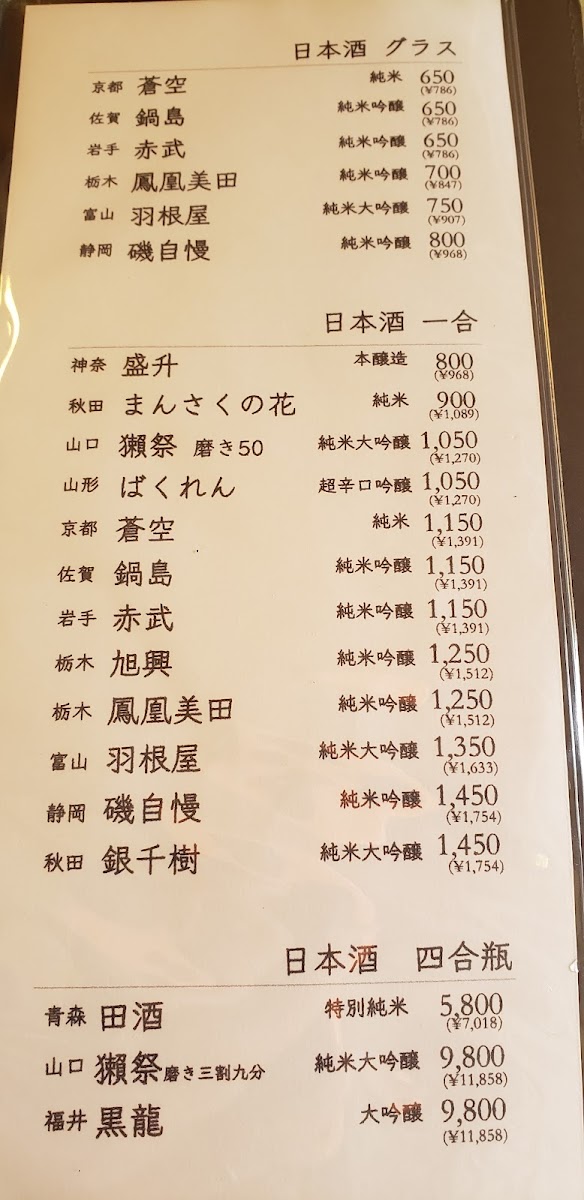 日本酒 グラス
京都 蒼空 純米 650
(¥786)
佐賀 鍋島 純米吟醸 650
(¥786)
岩手 赤武 純米吟醸 650
(¥786)
栃木 鳳凰美田 純米吟醸 700
(¥847)
富山 羽根屋 純米大吟醸 750
(¥907)
静岡 磯自慢 純米吟醸 800
(¥968)
日本酒 一合
神奈 盛升 本醸造 800
(¥968)
秋田 まんさくの花 純米 900
(¥1,089)
山口 獺祭 磨き50 純米大吟醸 1,050
(¥1,270)
山形 ばくれん 超辛口吟醸 1,050
(¥1,270)
京都 蒼空 純米 1,150
(¥1,391)
佐賀 鍋島 純米吟醸 1,150
(¥1,391)
岩手 赤武 純米吟醸 1,150
(¥1,391)
栃木 旭興 純米吟醸 1,250
(¥1,512)
栃木 鳳凰美田 純米吟醸 1,250
(¥1,512)
富山 羽根屋 純米大吟醸 1,350
(¥1,633)
静岡 磯自慢 純米吟醸 1,450
(¥1,754)
秋田 銀千樹 純米大吟醸 1,450
(¥1,754)
日本酒 四合瓶
青森 田酒 特別純米 5,800
(¥7,018)
山口 獺祭 磨き三割九分 純米大吟醸 9,800
(¥11,858)
福井 黒龍 大吟醸 9,800
(¥11,858)